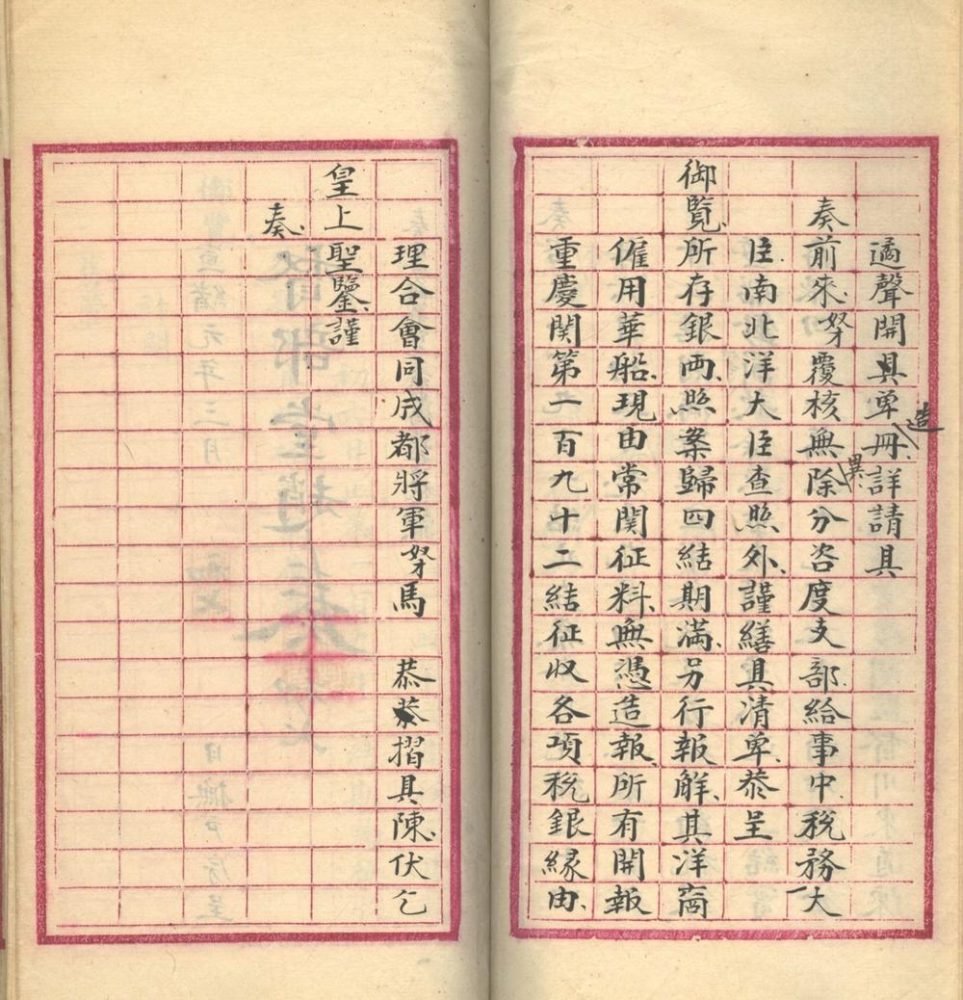 遹聲開具單造冊詳請具
奏前來奴才覆核無異除分咨度支部給事中稅務大
臣南北洋大臣查照外謹繕具清單恭呈
御覽所存銀兩照案歸四結期滿另行報解其洋商
僱用華船現由常関征料無憑造報所有開報
重慶関第一百九十二結征收各項稅銀緣由
理合會同成都將軍奴才馬 恭摺具陳伏乞
皇上聖鑒謹
奏